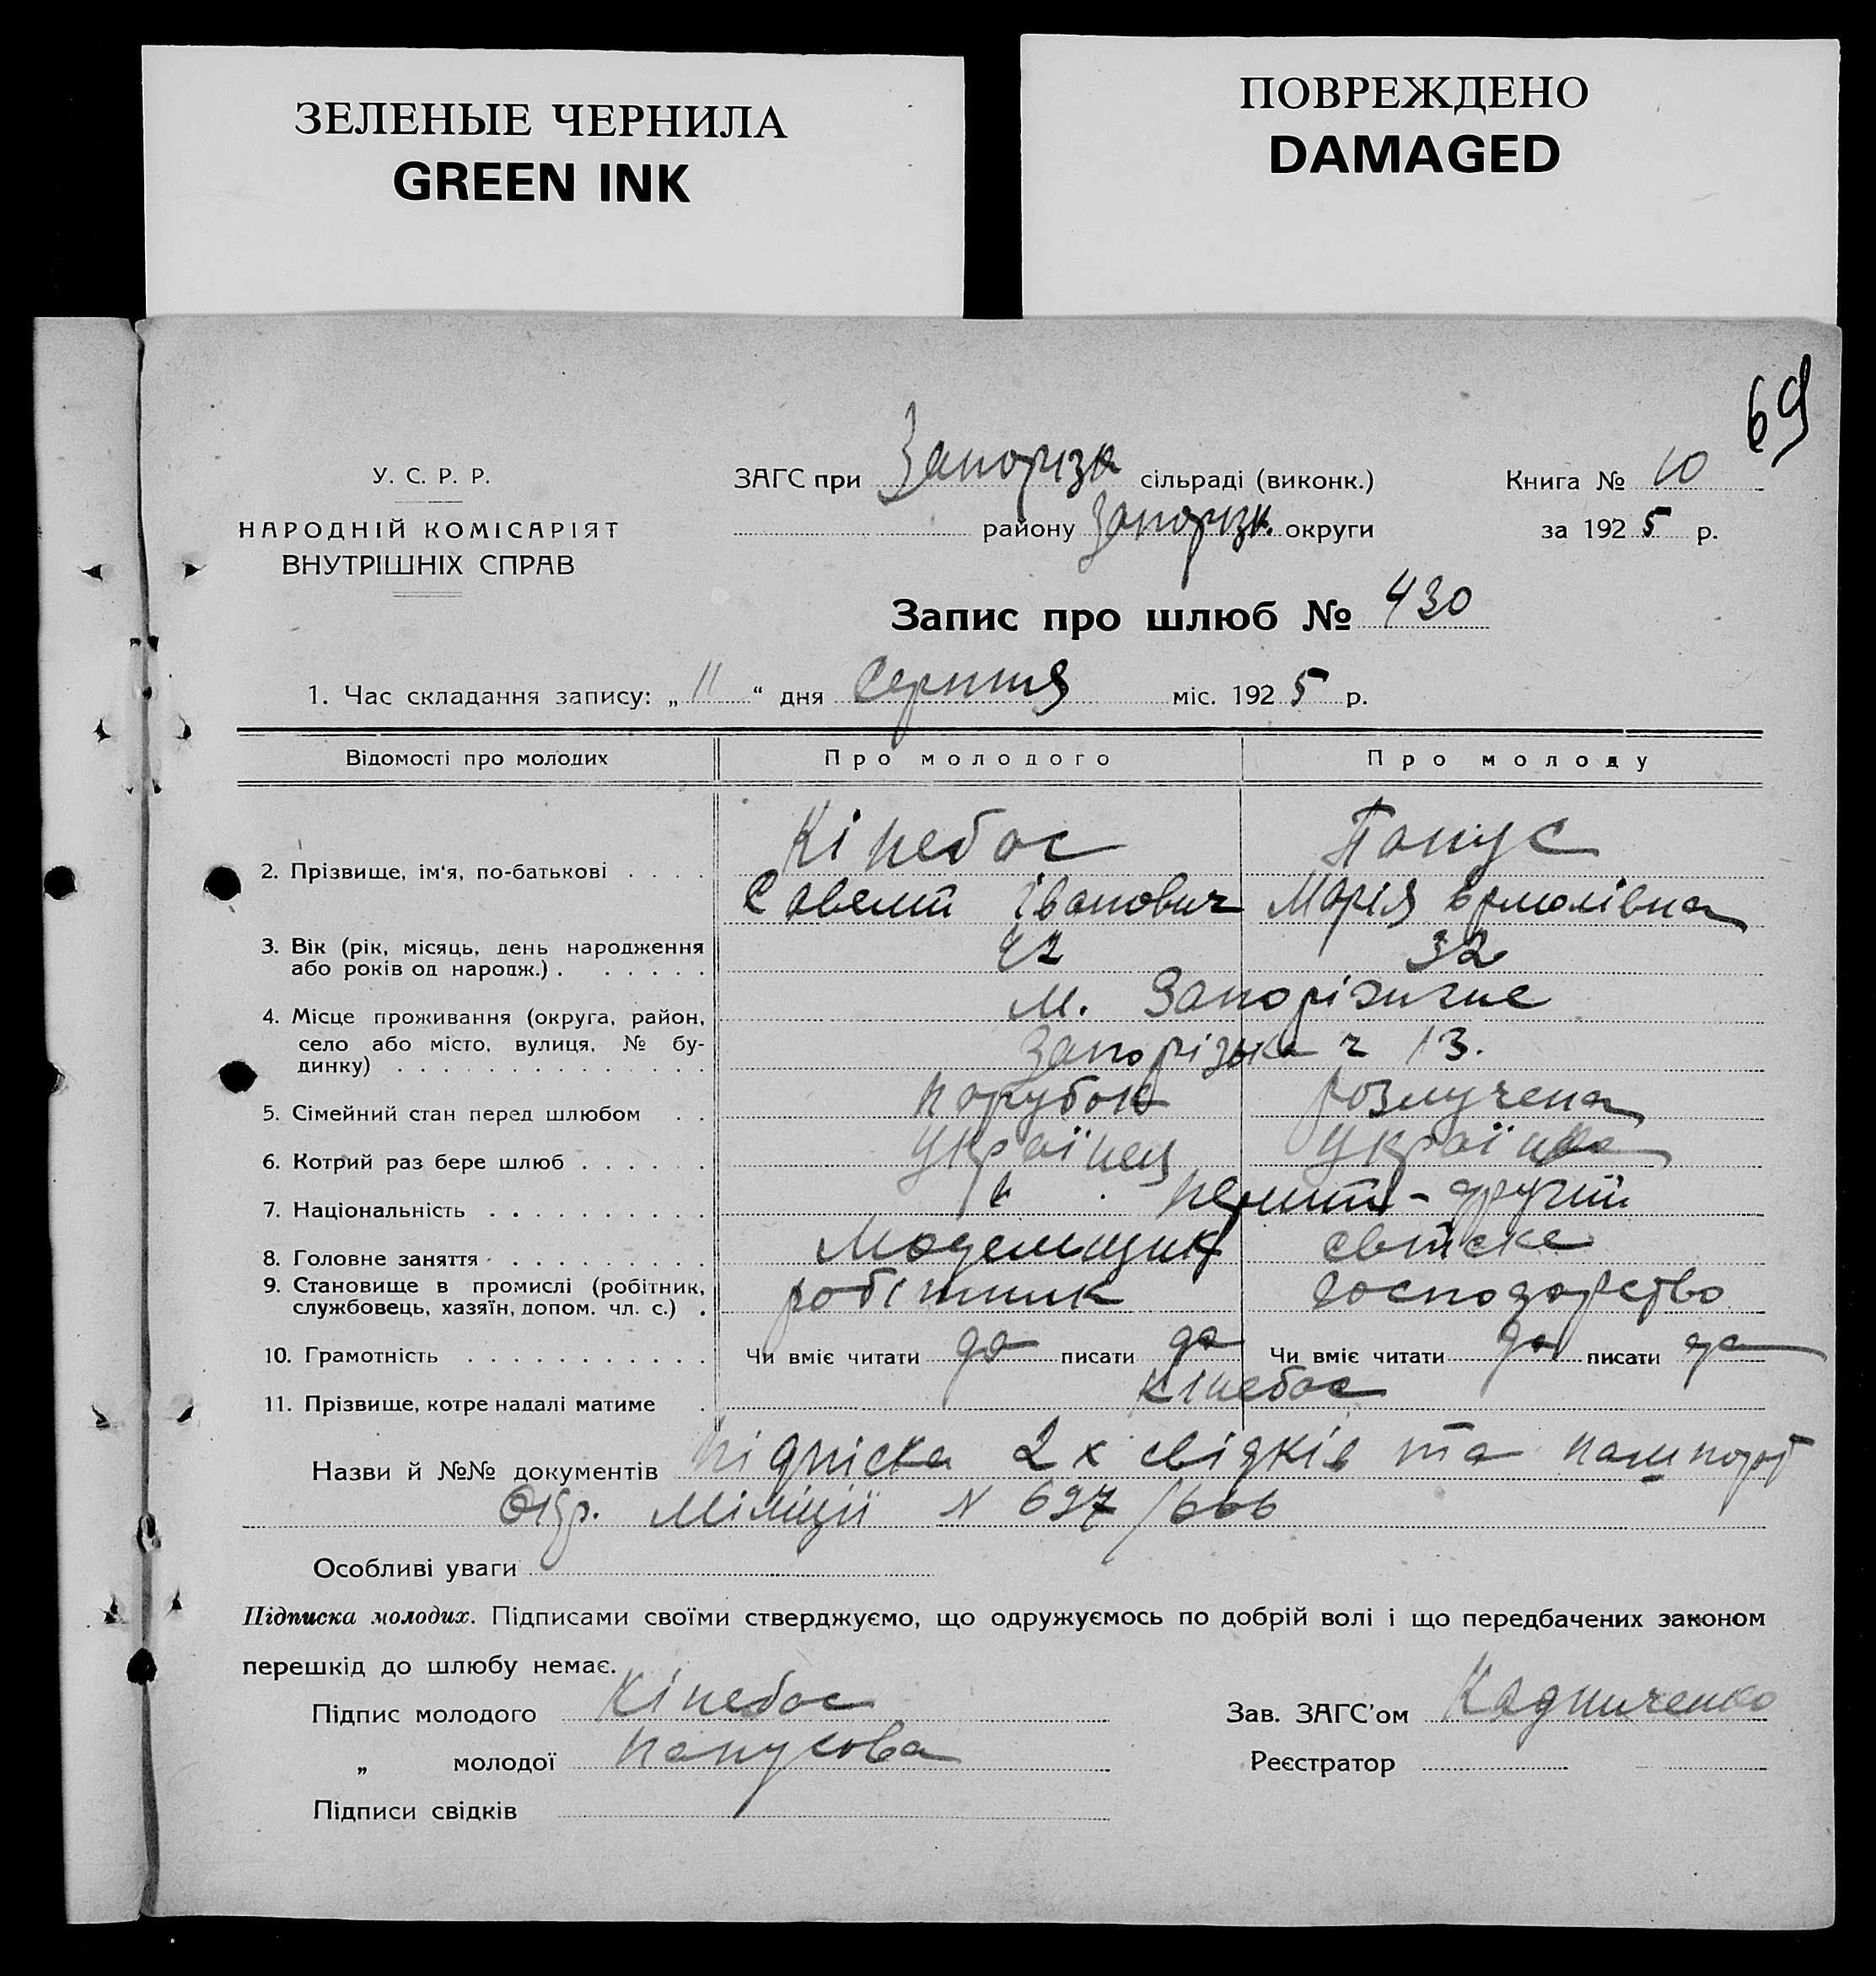 ЗЕЛЕНЫЕ ЧЕРНИЛА
GREEN INK
ПОВРЕЖДЕНО
DAMAGED
69
У. С. Р. Р.
НАРОДНІЙ КОМІСАРІЯТ
ВНУТРІШНІХ СПРАВ
ЗАГС при Запорізк сільраді (виконк.)
району Запорізк. округи
Книга № 10
за 1925 р.
Запис про шлюб № 430
1. Час складання запису: „ 11 “ дня Серпня міс. 1925 р.
Відомості про молодих Про молодого Про молоду
2. Прізвище, ім‘я, по-батькові . . . . Кінебас Папус
Савелий Іванович Марія Ермолівна
3. Вік (рік, місяць, день народження
або років од народж.) . . . . . . 42 32
4. Місце проживання (округа, район,
село або місто, вулиця, № бу-
динку) . . . . . . . . . . . . . .
м. Запоріжжє
Запорізька ч 13.
5. Сімейний стан перед шлюбом . . парубок розлучена
6. Котрий раз бере шлюб . . . . . . Українец Українка
7. Національність . . . . . . . . . . перший - другий
8. Головне заняття . . . . . . . . . . Модельщик свійске
9. Становище в промислі (робітник,
службовець, хазяїн, допом. чл. с.) . робітник господарство
10. Грамотність . . . . . . . . . . . Чи вміє читати да писати да Чи вміє читати да писати да
11. Прізвище, котре надалі матиме . Кінебас
Назви й №№ документів підпіска 2х свідків та пашпорт
Окр. Міліції N 697/666
Особливі уваги
Підписка молодих. Підписами своїми стверджуємо, що одружуємось по добрій волі і що передбачених законом
перешкід до шлюбу немає.
Підпис молодого Кінебас
„ молодої Папусова
Підписи свідків
Зав. ЗАГС’ом Кадниченко
Реєстратор